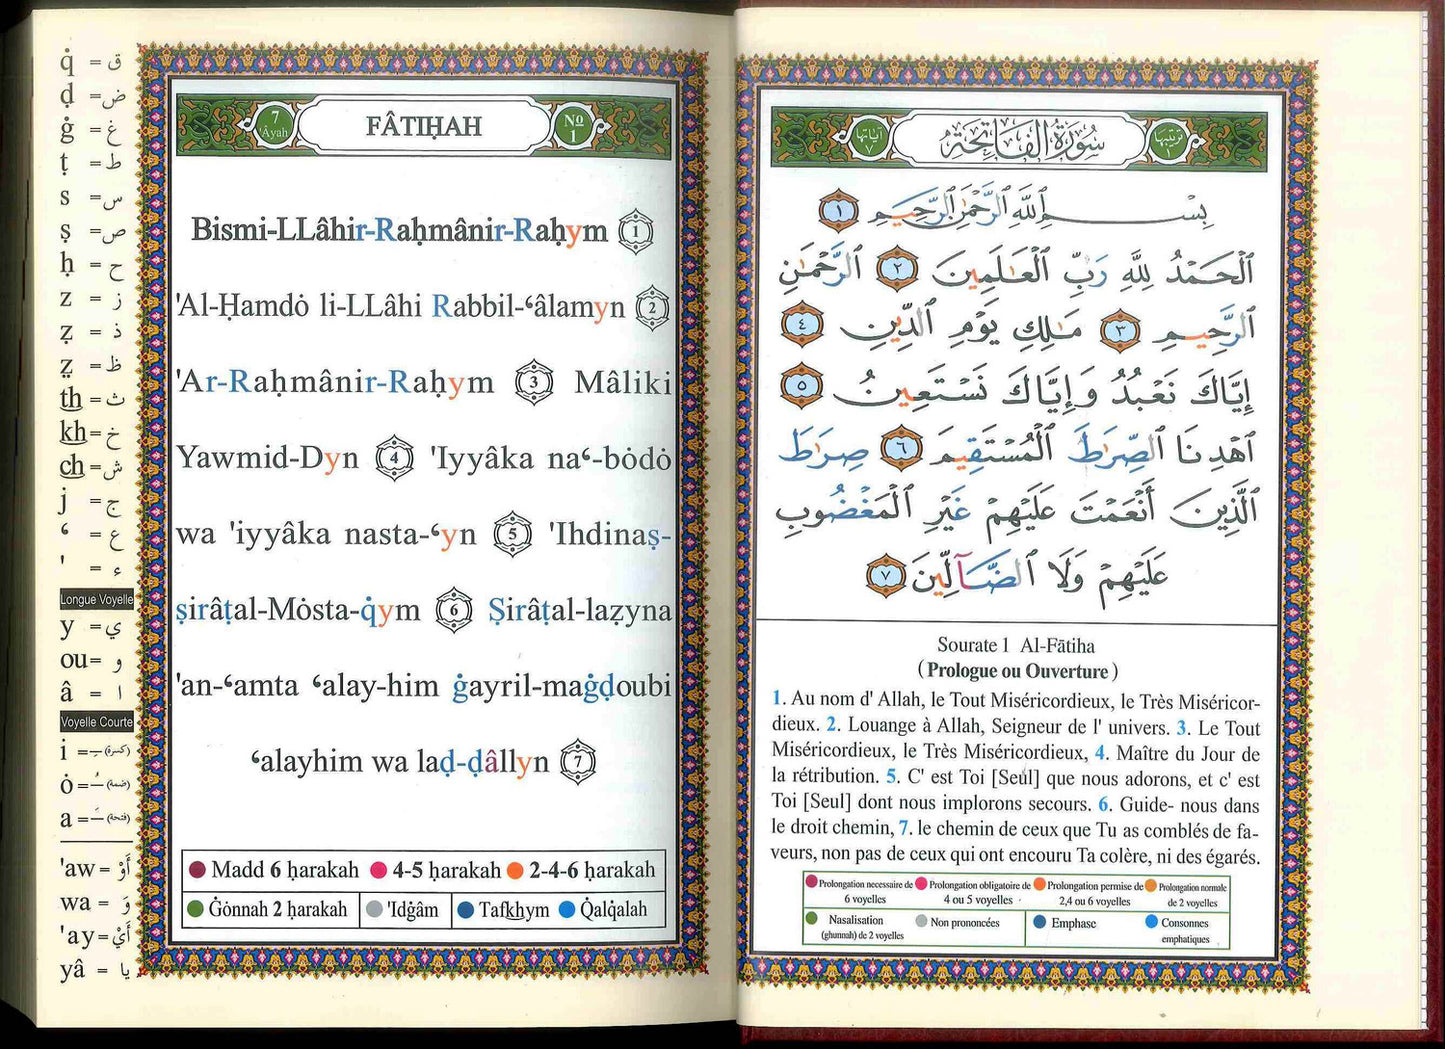 q̇ = ق
ḍ = ض
ġ = غ
ṭ = ط
s = س
ṣ = ص
ḥ = ح
z = ز
ẓ = ذ
ẓ̤ = ظ
th = ث
kh = خ
ch = ش
j = ج
ʿ = ع
' = ء
Longue Voyelle
y = ي
ou = و
â = ا
Voyelle Courte
i = ـِ (كسرة)
ȯ = ـُ (ضمة)
a = ـَ (فتحة)
'aw = أَوْ
wa = وَ
'ay = أَيْ
yâ = يا
7 'Âyah FÂTIḤAH No 1
Bismi-LLâhir-Raḥmânir-Raḥym 1
'Al-Ḥamdȯ li-LLâhi Rabbil-ʿâlamyn 2
'Ar-Raḥmânir-Raḥym 3 Mâliki
Yawmid-Dyn 4 'Iyyâka naʿ-bȯdȯ
wa 'iyyâka nasta-ʿyn 5 'Ihdinaṣ-
ṣirâṭal-Mȯsta-q̇ym 6 Ṣirâṭal-laẓyna
'an-ʿamta ʿalay-him ġayril-maġḍoubi
ʿalayhim wa laḍ-ḍâllyn 7
Madd 6 ḥarakah 4-5 ḥarakah 2-4-6 ḥarakah
Ġȯnnah 2 ḥarakah 'Idġâm Tafkhym Q̇alq̇alah
ترتيبها ١ سُورَةُ الفَاتِحَةِ آياتها ٧
بِسْمِ ٱللَّهِ ٱلرَّحْمَٰنِ ٱلرَّحِيمِ ١
ٱلْحَمْدُ لِلَّهِ رَبِّ ٱلْعَٰلَمِينَ ٢ ٱلرَّحْمَٰنِ
ٱلرَّحِيمِ ٣ مَٰلِكِ يَوْمِ ٱلدِّينِ ٤
إِيَّاكَ نَعْبُدُ وَإِيَّاكَ نَسْتَعِينُ ٥
ٱهْدِنَا ٱلصِّرَٰطَ ٱلْمُسْتَقِيمَ ٦ صِرَٰطَ
ٱلَّذِينَ أَنْعَمْتَ عَلَيْهِمْ غَيْرِ ٱلْمَغْضُوبِ
عَلَيْهِمْ وَلَا ٱلضَّآلِّينَ ٧
Sourate 1 Al-Fātiha
( Prologue ou Ouverture )
1. Au nom d' Allah, le Tout Miséricordieux, le Très Miséricor-
dieux. 2. Louange à Allah, Seigneur de l' univers. 3. Le Tout
Miséricordieux, le Très Miséricordieux, 4. Maître du Jour de
la rétribution. 5. C' est Toi [Seul] que nous adorons, et c' est
Toi [Seul] dont nous implorons secours. 6. Guide- nous dans
le droit chemin, 7. le chemin de ceux que Tu as comblés de fa-
veurs, non pas de ceux qui ont encouru Ta colère, ni des égarés.
Prolongation necessaire de 6 voyelles
Prolongation obligatoire de 4 ou 5 voyelles
Prolongation permise de 2,4 ou 6 voyelles
Prolongation normale de 2 voyelles
Nasalisation (ghunnah) de 2 voyelles
Non prononcées
Emphase
Consonnes emphatiques